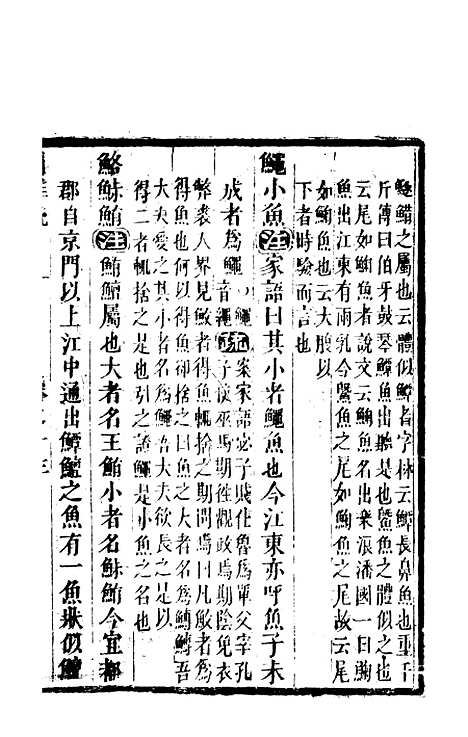 鱀鱃之屬也云體似鱏者字林云鱏長鼻魚也重千
斤傳曰伯牙鼓琴鱏魚出聽是也鱀魚之體似之也
云尾如䱡魚者說文云䱡魚名出樂浪潘國一曰䱡
魚出江東有兩乳今鱀魚之尾如䱡魚之尾故云尾
如䱡魚也云大腹以
下者時驗而言也
鱦小魚注家語曰其小者鱦魚也今江東亦呼魚子未
成者爲鱦音繩疏 案家語宓子賤仕魯爲單父宰孔
子使巫馬期徃觀政焉期陰免衣
弊裘人界見敏者得魚輒捨之期問焉曰凡敏者爲
得魚也何以得魚卽捨之曰魚之大者名爲鱄吾
大夫愛之其小者名爲鱦吾大夫欲長之是以
得二者輒捨之是也引之證鱦是小魚之名也
鮥鮛鮪注鮪鱣屬也大者名王鮪小者名鮛鮪今宜都
郡自京門以上江中通出鱏鱣之魚有一魚狀似鱣